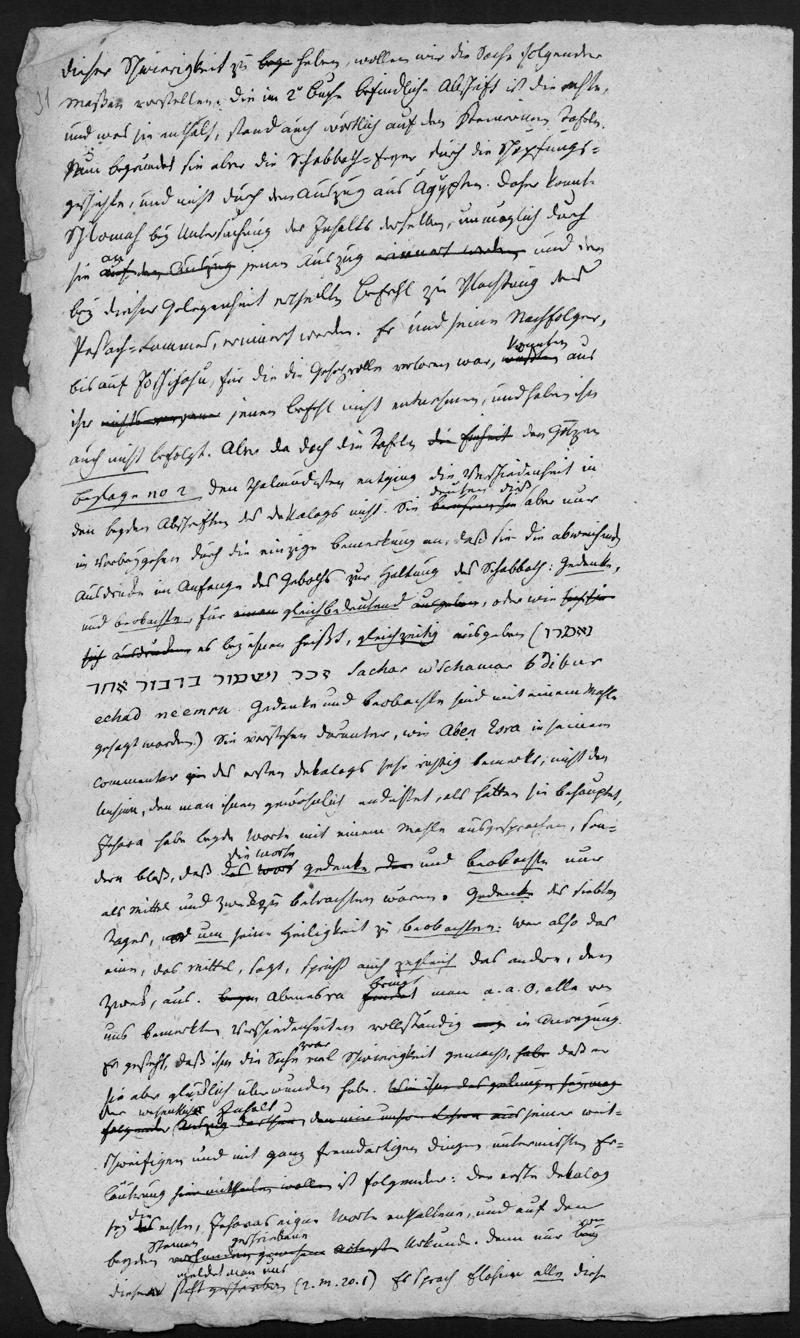 31
dieser Schwierigkeit zu heben, wollen wir die Sache folgender
maßen vorstellen. Die im 2n Buche befindliche Abschrift ist die echte,
und was sie enthält, stand auch wörtlich auf den steinernen Tafeln.
Nun begründet sie aber die Schabbath=feyer durch die Schöpfungs=
geschichte, und nicht durch den Auszug aus Ägypten. Daher konnte
Schlomah bey Untersuchung des Inhalts derselben, unmöglich durch
sie an auf den Auszug jenen Auszug erinnert werden und den
bey dieser Gelegenheit ertheilten Befehl zur Schlachtung des
Pesach=Lammes, erinnert werden. Er und seine Nachfolger,
bis auf Joschijahu, für die die Gesetzrolle verloren war, konnten aus
ihr jenen Befehl nicht entnehmen, und haben ihn
auch nicht befolgt. Aber da doch die Tafeln die Einheit den Götzen
Beylage no 2 den Thalmudisten entging die Verschiedenheit in
den beyden Abschriften des Dekalogs nicht. Sie deuten dieß aber nur
im Vorbeygehen durch die einzige Bemerkung an, daß sie die abweichenden
Ausdrücke im Anfange des Geboths zur Haltung des Schabbath: Gedenke,
und beobachte für einen gleichbedeutend ausgeben, oder wie
sich ausdrücken es bey ihnen heißt, gleichzeitig ausgeben (נאמרו
זכר ושמור בדבור אחד Sachor w'schamor b'dibur
echad neemru. Gedenke und beobachte sind mit einem Mahle
gesagt worden.) Sie verstehen darunter, wie Aben Esra in seinem
Commentar des ersten Dekalogs sehr richtig bemerkt, nicht den
Unsinn, den man ihnen gewöhnlich andichtet, als hätten sie behauptet,
Jehova habe beyde Worte mit einem Mahle ausgesprochen, son=
dern bloß, daß die Worte das Wort gedenke, den und beobachte nur
als Mittel und Zweck zu betrachten wären. Gedenke des siebten
Tages, um seine Heiligkeit zu beobachten: wer also das
eine, das Mittel, sagt, spricht auch zugleich das andre, den
Zweck, aus. Abenesra bringt man a. a. O. alle von
uns bemerkten Verschiedenheiten vollständig in Anregung.
Er gesteht, daß ihm die Sache zwar viel Schwierigkeit gemacht, habe daß er
sie aber glücklich überwunden habe.
Der wesentliche Inhalt seiner weit=
schweifigen und mit ganz fremdartigen Dingen untermischten Er=
läuterung hier mittheilen wollen ist folgender: der erste Dekalog
sey die echte, Jehovas eigne Worte enthaltene, und auf den
beyden Steinen geschriebene Urkunde. Denn nur von
diesem meldet man uns (2. M. 20. 1) Es sprach Elohim alle diese